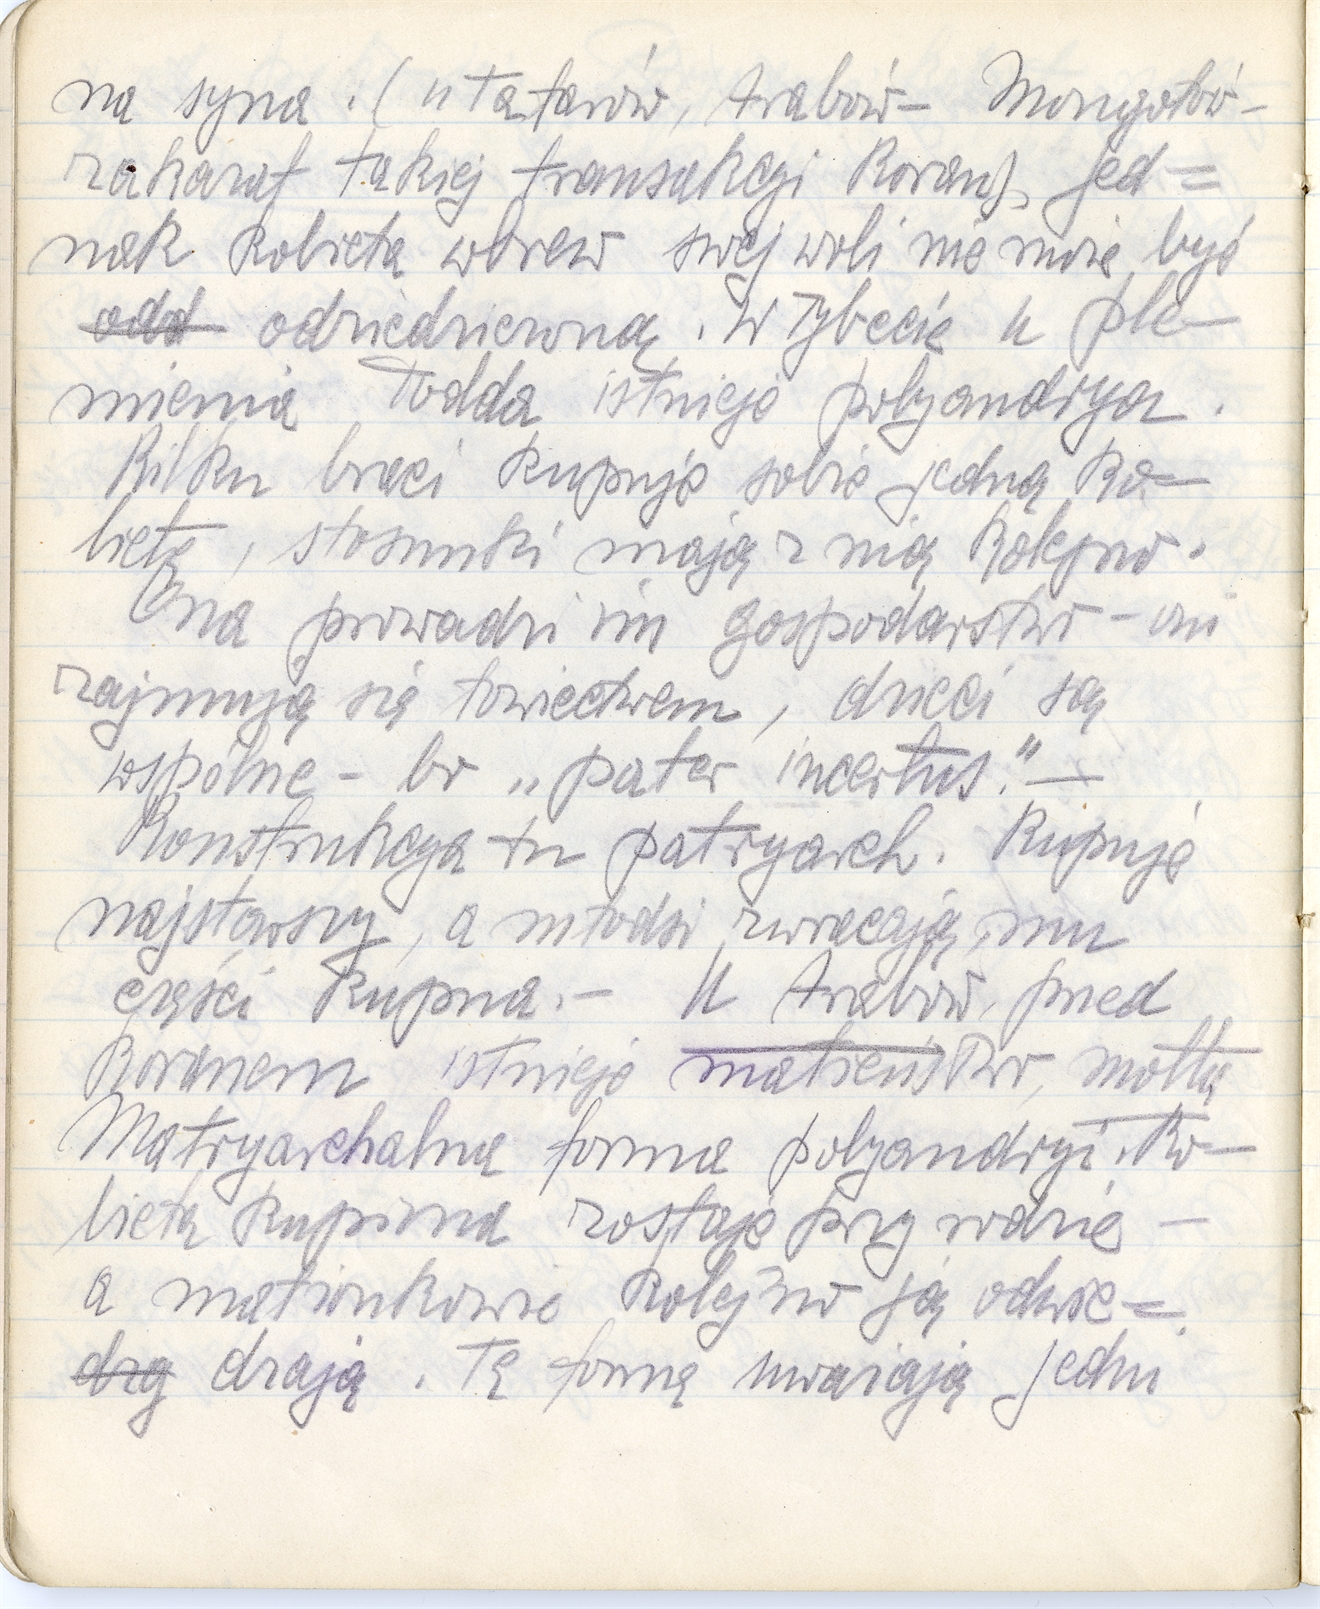 na syna. (u Tatarów, Arabów – Mongołów –
zakazał takiej transakcyi Koran), jed=
nak kobieta wbrew swej woli nie może być
odd odziedziczoną. W Tybecie u ple–
mienia Todda istnieje polyandrya.
Kilku braci kupuje sobie jedną ko–
bietę, stosunki mają z nią kolejno.
Ona prowadzi im gospodarstwo – oni
zajmują się łowiectwem, dzieci są
wspólne – bo „pater incertus." –
Konstrukcya tu patryarch. Kupuje
najstarszy, a młodsi zwracają mu
części kupna. – U Arabów, przed
Koranem istnieje małżeństwo, motta
Matryarchalna forma polyandryi. Ko–
bieta kupiona zostaje przy rodzie –
a małżonkowie kolejno ją odwie=
dzy dzają. Tę formę uważają jedni